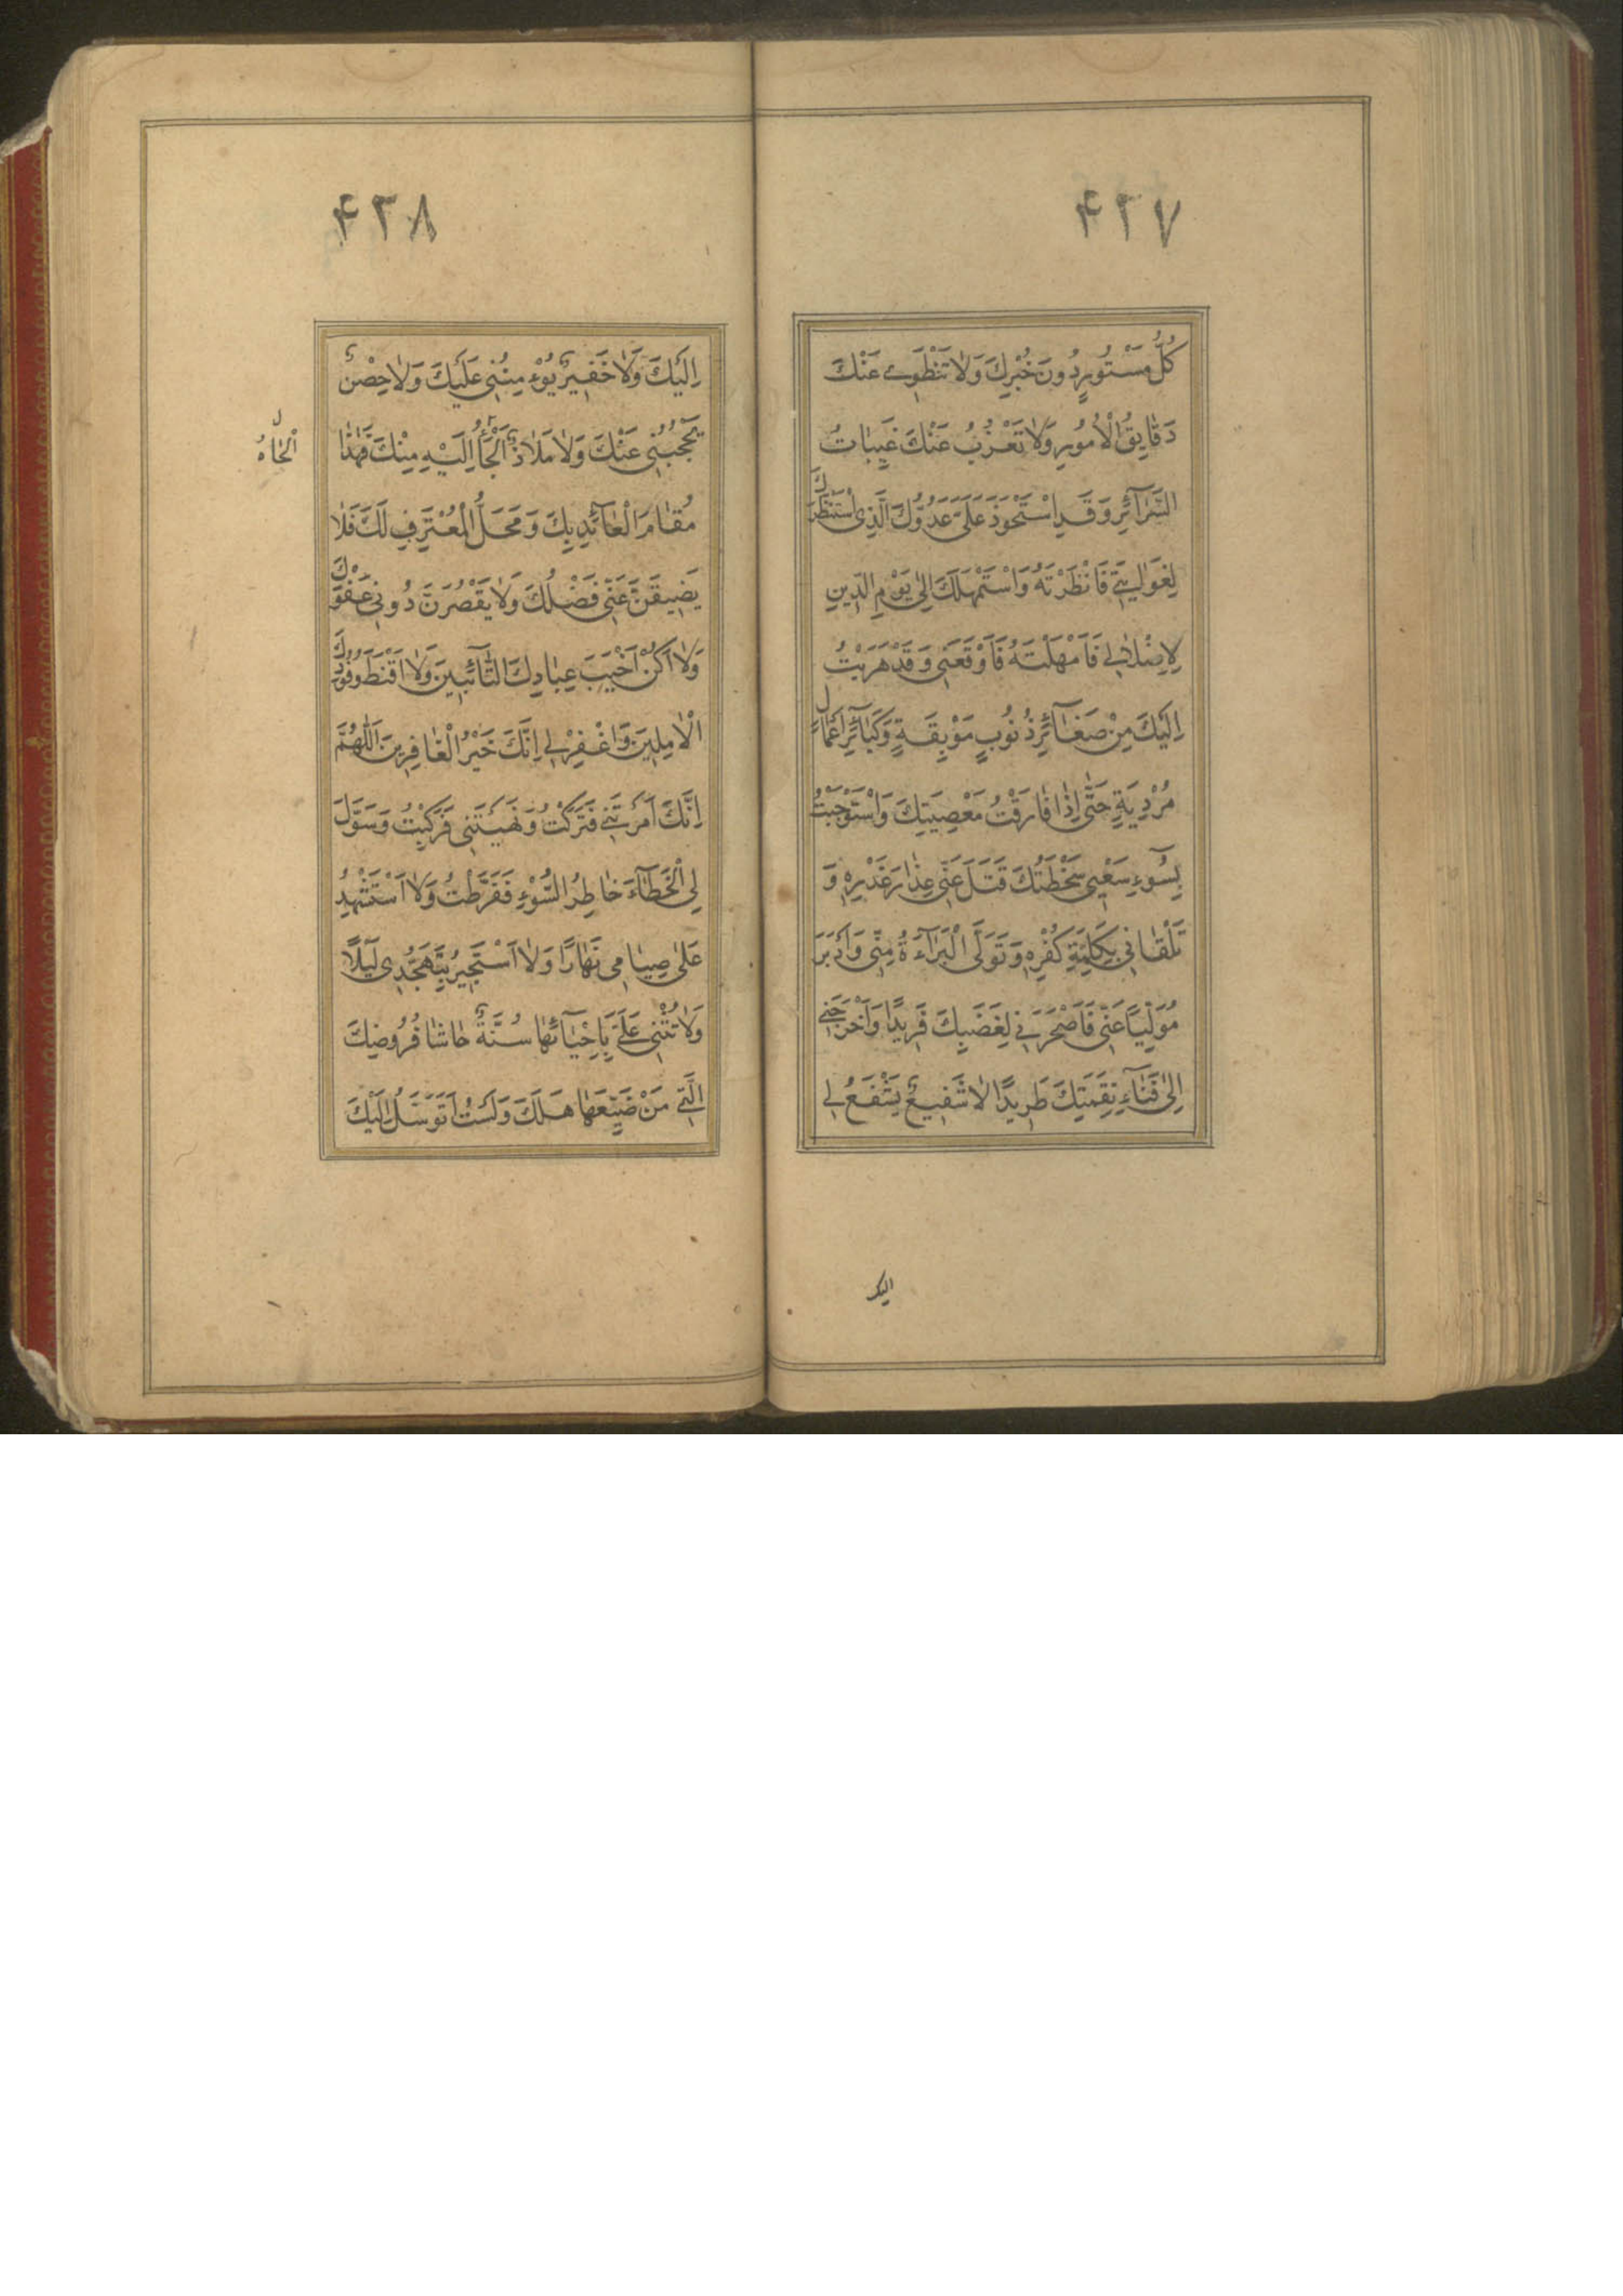 ۴۳۷
كُلُّ مَسْتُورٍ دُونَ خُبْرِكَ وَلَا تَنْطَوِي عَنْكَ
دَقَايِقُ الْأُمُورِ وَلَا تَعْزُبُ عَنْكَ غَيِّبَاتُ
السَّرَآئِرِ وَقَدِ اسْتَحْوَذَ عَلَيَّ عَدُوُّكَ الَّذِي اسْتَنْظَرَكَ
لِغَوَايَتِي فَاَنْظَرْتَهُ وَاسْتَمْهَلَكَ اِلٰى يَوْمِ الدِّينِ
لِاِضْلَالِي فَاَمْهَلْتَهُ فَاَوْقَعَنِي وَقَدْ هَرَبْتُ
اِلَيْكَ مِنْ صَغَآئِرِ ذُنُوبٍ مَوْبِقَةٍ وَكَبَآئِرِ اَعْمَالٍ
مُرْدِيَةٍ حَتّٰى اِذَا فَارَقْتُ مَعْصِيَتَكَ وَاسْتَوْجَبْتُ
بِسُوٓءِ سَعْيِي سَخْطَتَكَ فَتَلَ عَنِّي عِذَارَ غَدْرِهِ وَ
تَلَقَّانِي بِكَلِمَةِ كُفْرِهِ وَتَوَلَّى الْبَرَآءَةَ مِنِّي وَاَدْبَرَ
مُوَلِّيًا عَنِّي فَاَصْحَرَنِي لِغَضَبِكَ فَرِيدًا وَاَخْرَجَنِي
اِلٰى فَنَآءِ نِقَمَتِكَ طَرِيدًا لَا شَفِيعٌ يَشْفَعُ لِي
اليك
۴۳۸
اِلَيْكَ وَلَا خَفِيرٌ يُؤْمِنُنِي عَلَيْكَ وَلَا حِصْنٌ
يَحْجُبُنِي عَنْكَ وَلَا مَلَاذٌ اَلْجَأُ اِلَيْهِ مِنْكَ فَهٰذَا
مَقَامُ الْعَآئِذِ بِكَ وَمَحَلُّ الْمُعْتَرِفِ لَكَ فَلَا
يَضِيقَنَّ عَنِّي فَضْلُكَ وَلَا يَقْصُرَنَّ دُونِي عَفْوُكَ
وَلَا اَكُنْ اَخْيَبَ عِبَادِكَ التَّآئِبِينَ وَلَا اَقْنَطَ وُفُودِكَ
الْآمِلِينَ وَاغْفِرْ لِي اِنَّكَ خَيْرُ الْغَافِرِينَ اَللّٰهُمَّ
اِنَّكَ اَمَرْتَنِي فَتَرَكْتُ وَنَهَيْتَنِي فَرَكِبْتُ وَسَوَّلَ
لِي الْخَطَآءَ خَاطِرُ السُّوْءِ فَفَرَّطْتُ وَلَا اَسْتَشْهِدُ
عَلٰى صِيَامِي نَهَارًا وَلَا اَسْتَجِيرُ بِتَهَجُّدِي لَيْلًا
وَلَا تُثْنِي عَلَيَّ بِاِحْيَآئِهَا سُنَّةٌ حَاشَا فُرُوضِكَ
الَّتِي مَنْ ضَيَّعَهَا هَلَكَ وَلَسْتُ اَتَوَسَّلُ اِلَيْكَ